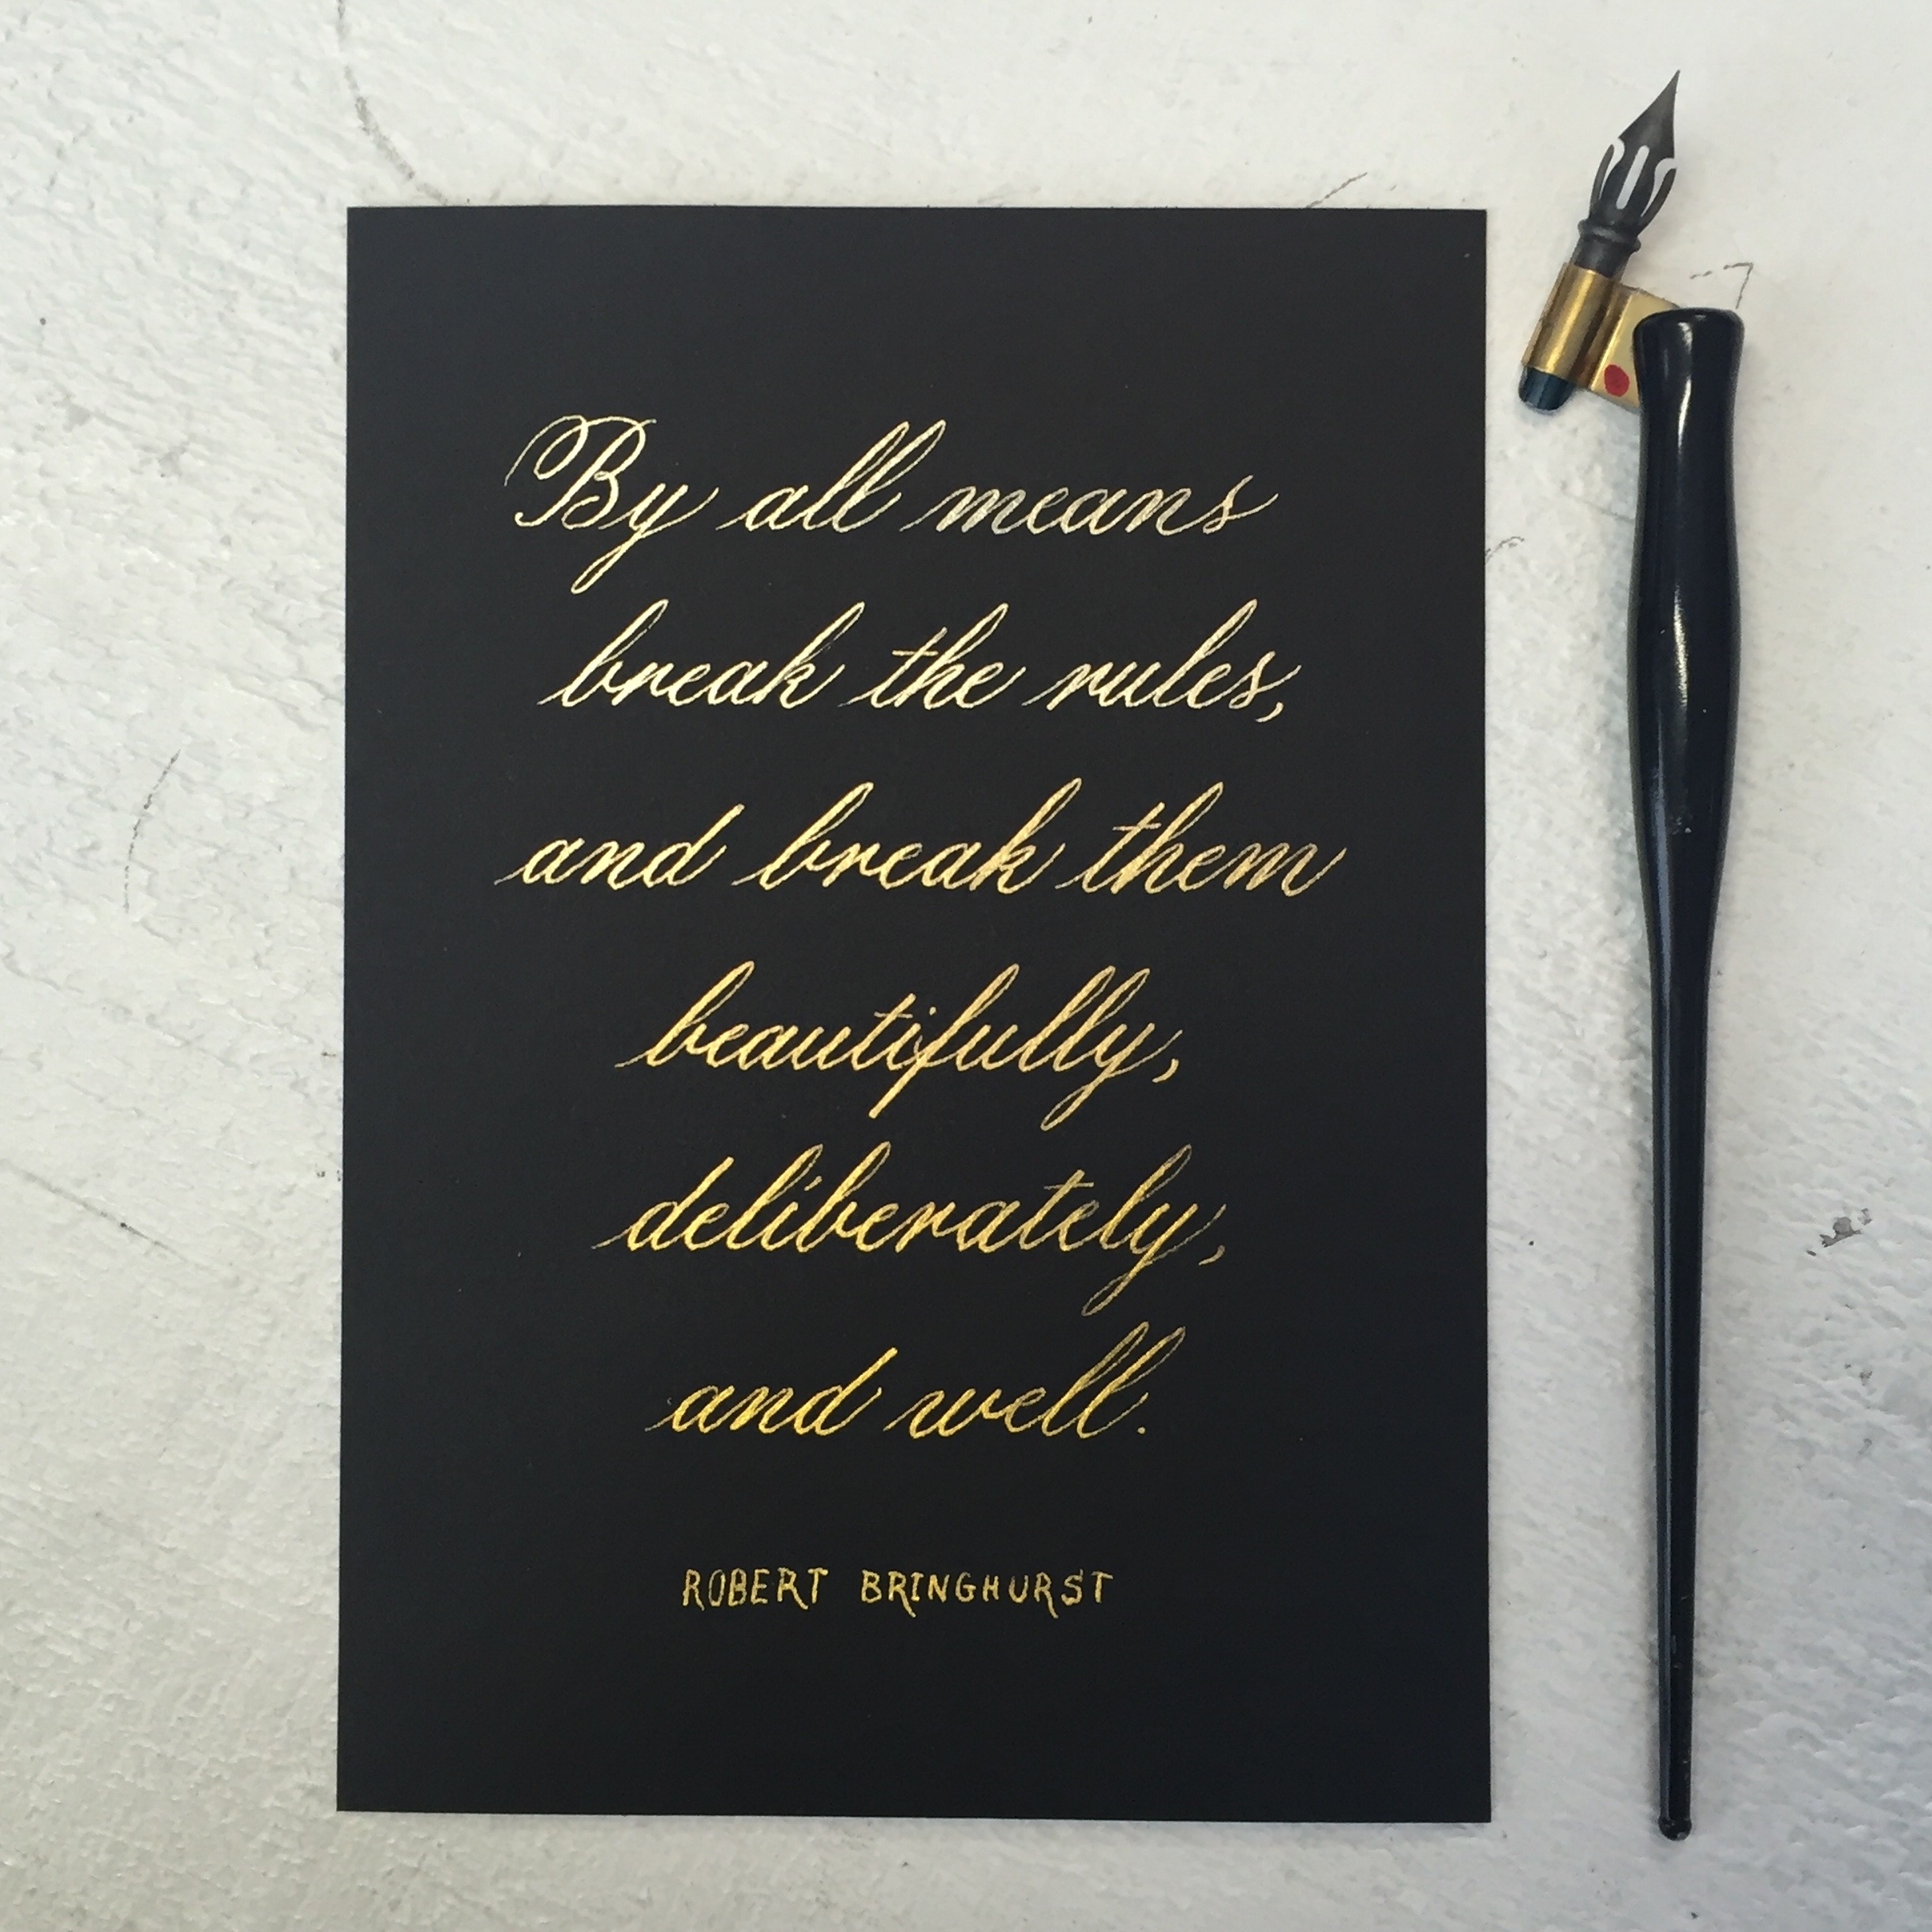 By all means
break the rules,
and break them
beautifully,
deliberately,
and well.
ROBERT BRINGHURST